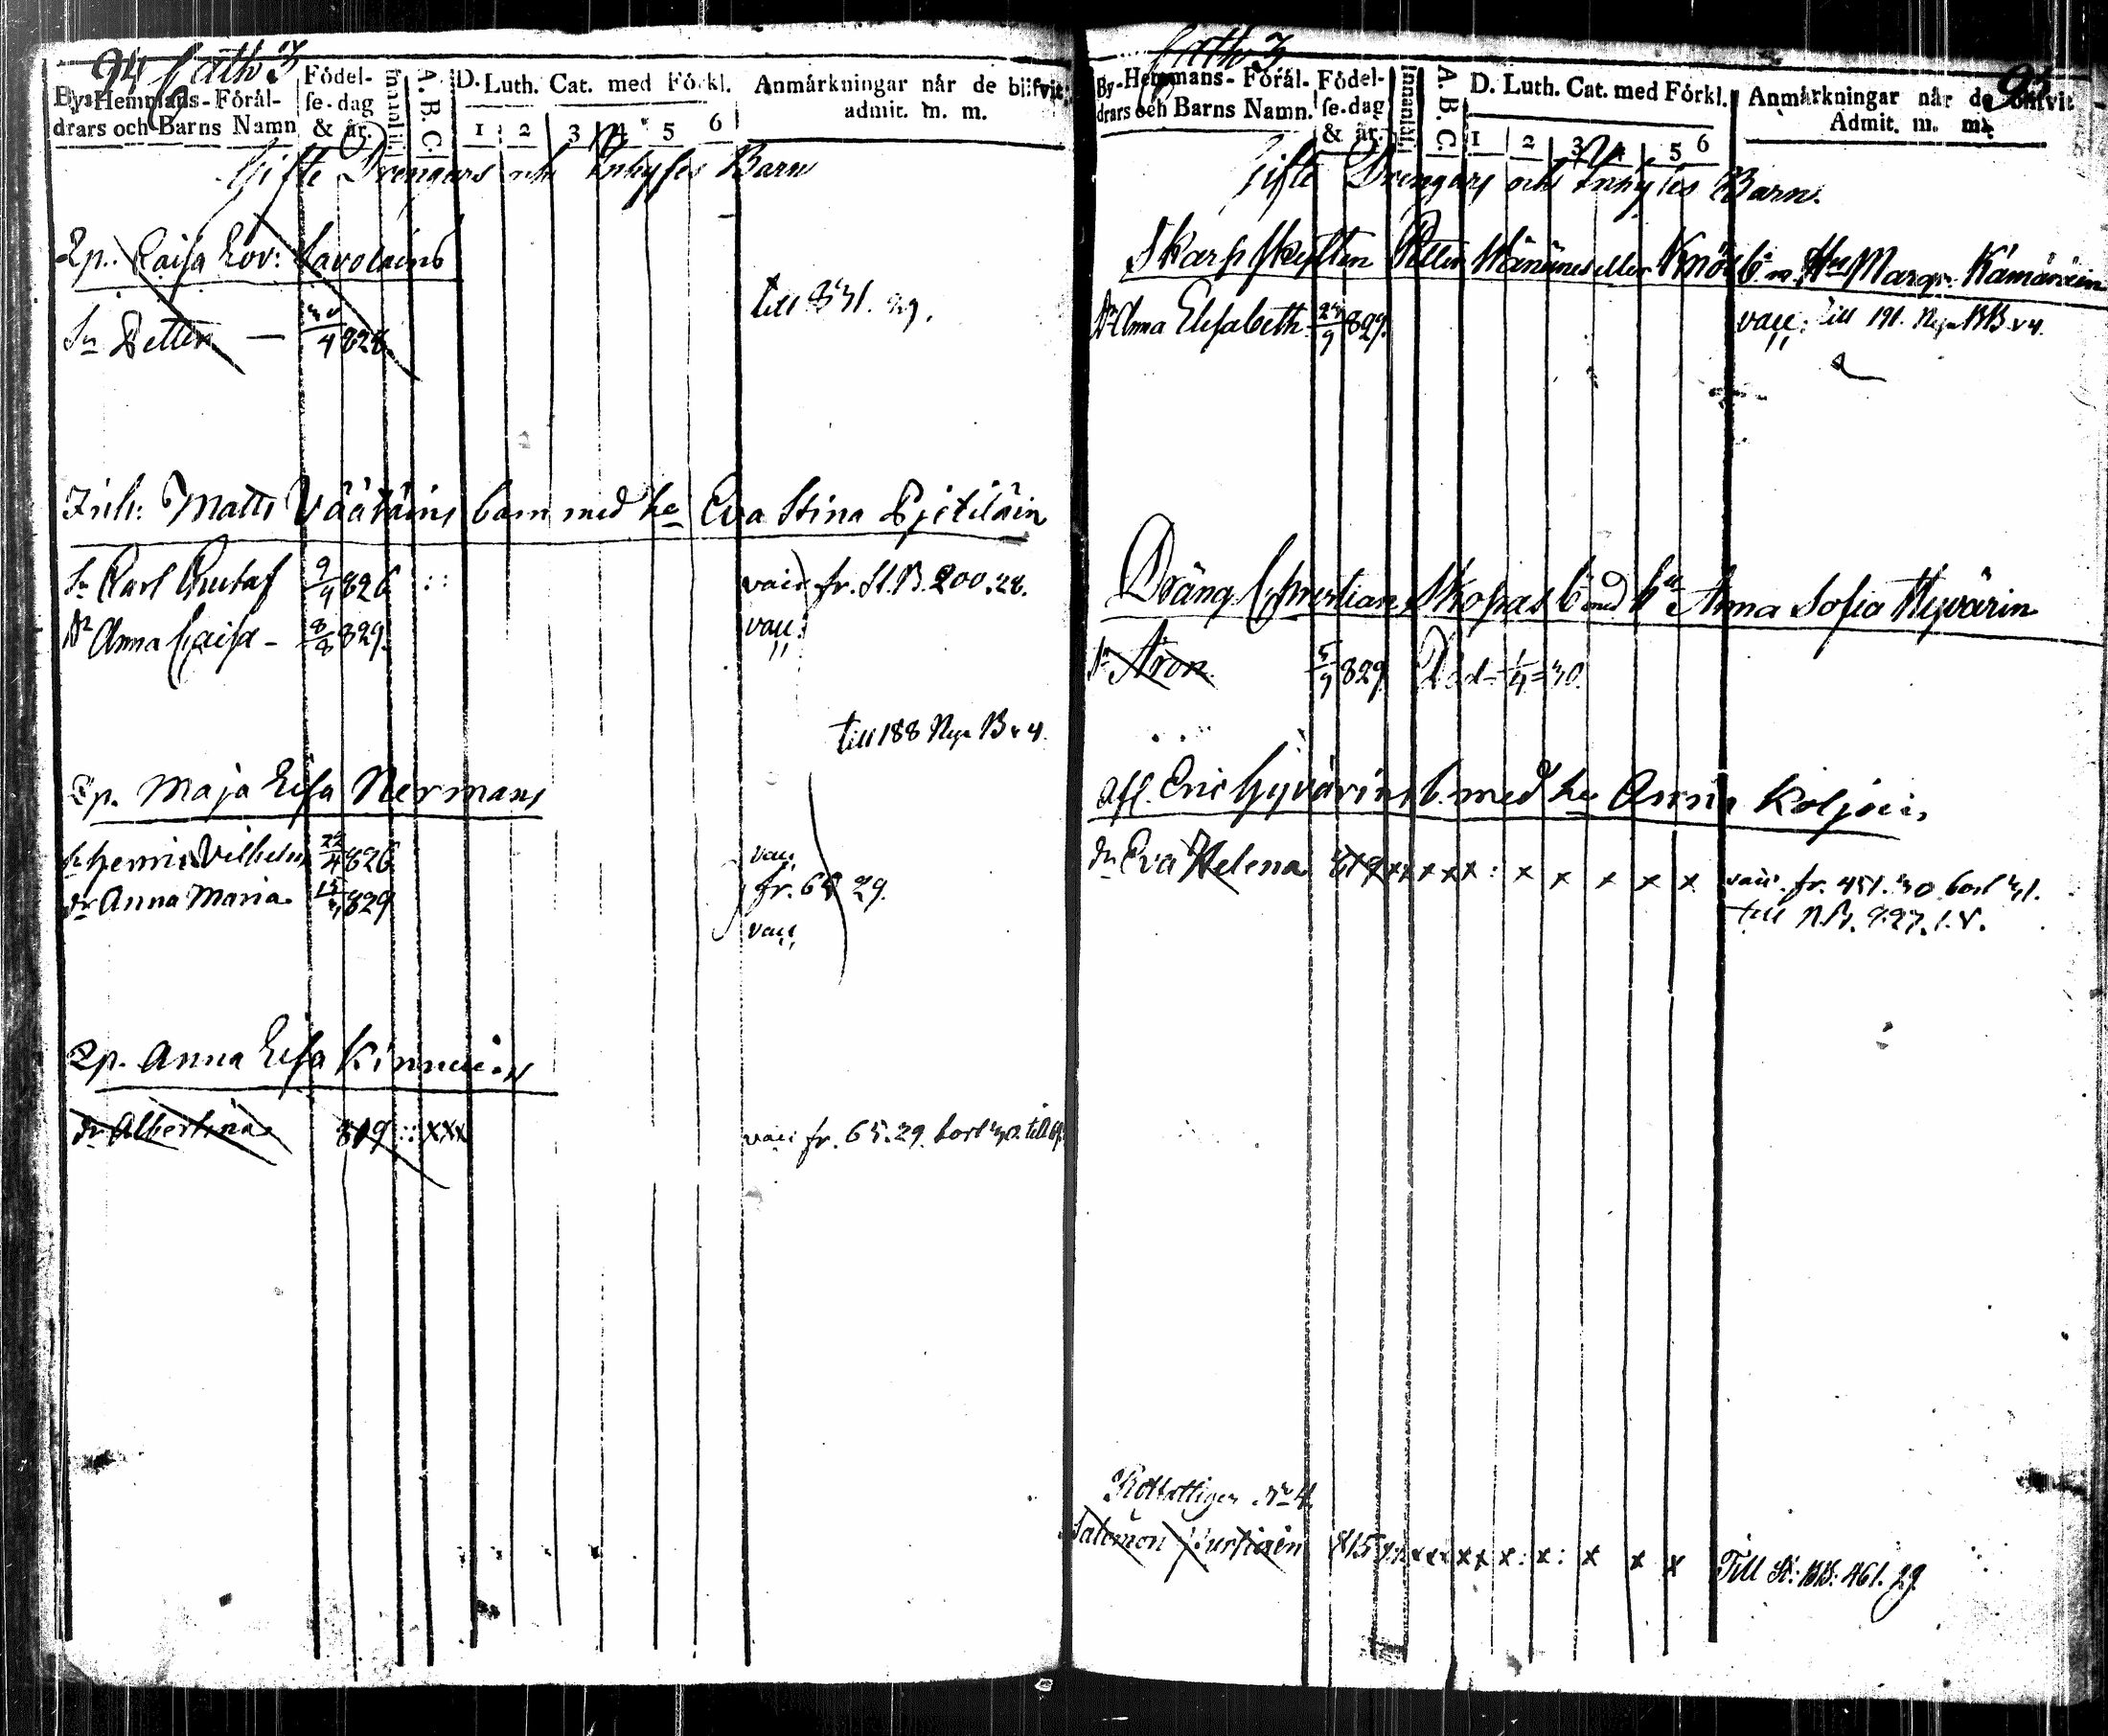 94
By, Hemmans- Föräl-
drars och Barns Namn
Födel-
se-dag
& år.
Innanläs:
A. B. C.
D. Luth. Cat. med Förkl.
1 2 3 4 5 6
Anmärkningar når de blifvit
admit. m. m.
Gifte Drengars och Inhyses Barn
Qp. Caisa Lov: Savolains
Sn Petter — 4 828
till 831. 29.
Inh: Matts Väätäins barn med hu Eva Stina Pjetiläin
Sn Carl Gustaf 9/4 826 :: vacc: fr. St. B. 200.28.
Dr Anna Caisa - 8/8 829. vacc:
till 188 Nya B v 4.
Qp. Maja Lisa Nermans
Sn Henric Vilhelm 22/4 826 vacc.
fr. 68 29.
dr Anna Maria. 829 vacc
Qp. Anna Lisa Kinnuins
dr Albertina 819 :: xxx vacc fr. 65.29. bort 30. till
95
By- Hemmans- Föräl-
drars och Barns Namn.
Födel-
se-dag
& år.
Innanläs:
A. B. C
D. Luth. Cat. med Förkl.
1 2 3 4 5 6
Anmärkningar når de blifvit
Admit. m. m.
Gifte Drengars och Inhyses Barn.
Skarpskytten Petter Hännines eller Knös b. m. Hu Margr. Kämäräin
Dr Anna Elisabeth 829. vacc: Till 191. Nya BB v 4.
Dräng Christian Skopas b med hu Anna Sofia Hyvärin
Sn Aron. 5/9 829 Död 1/4 30.
Afl. Eric Hyvärins b. med hu Anna Koljoin
dr Eva Helena 819 x x x x x : x x x x x vacc. fr. 451. 30 bort 31.
till N.B. 927. 1.V.
Rotfattigen No 4.
Salomon 815 x x x x x x : x : x x x Till St: BB: 461. 29